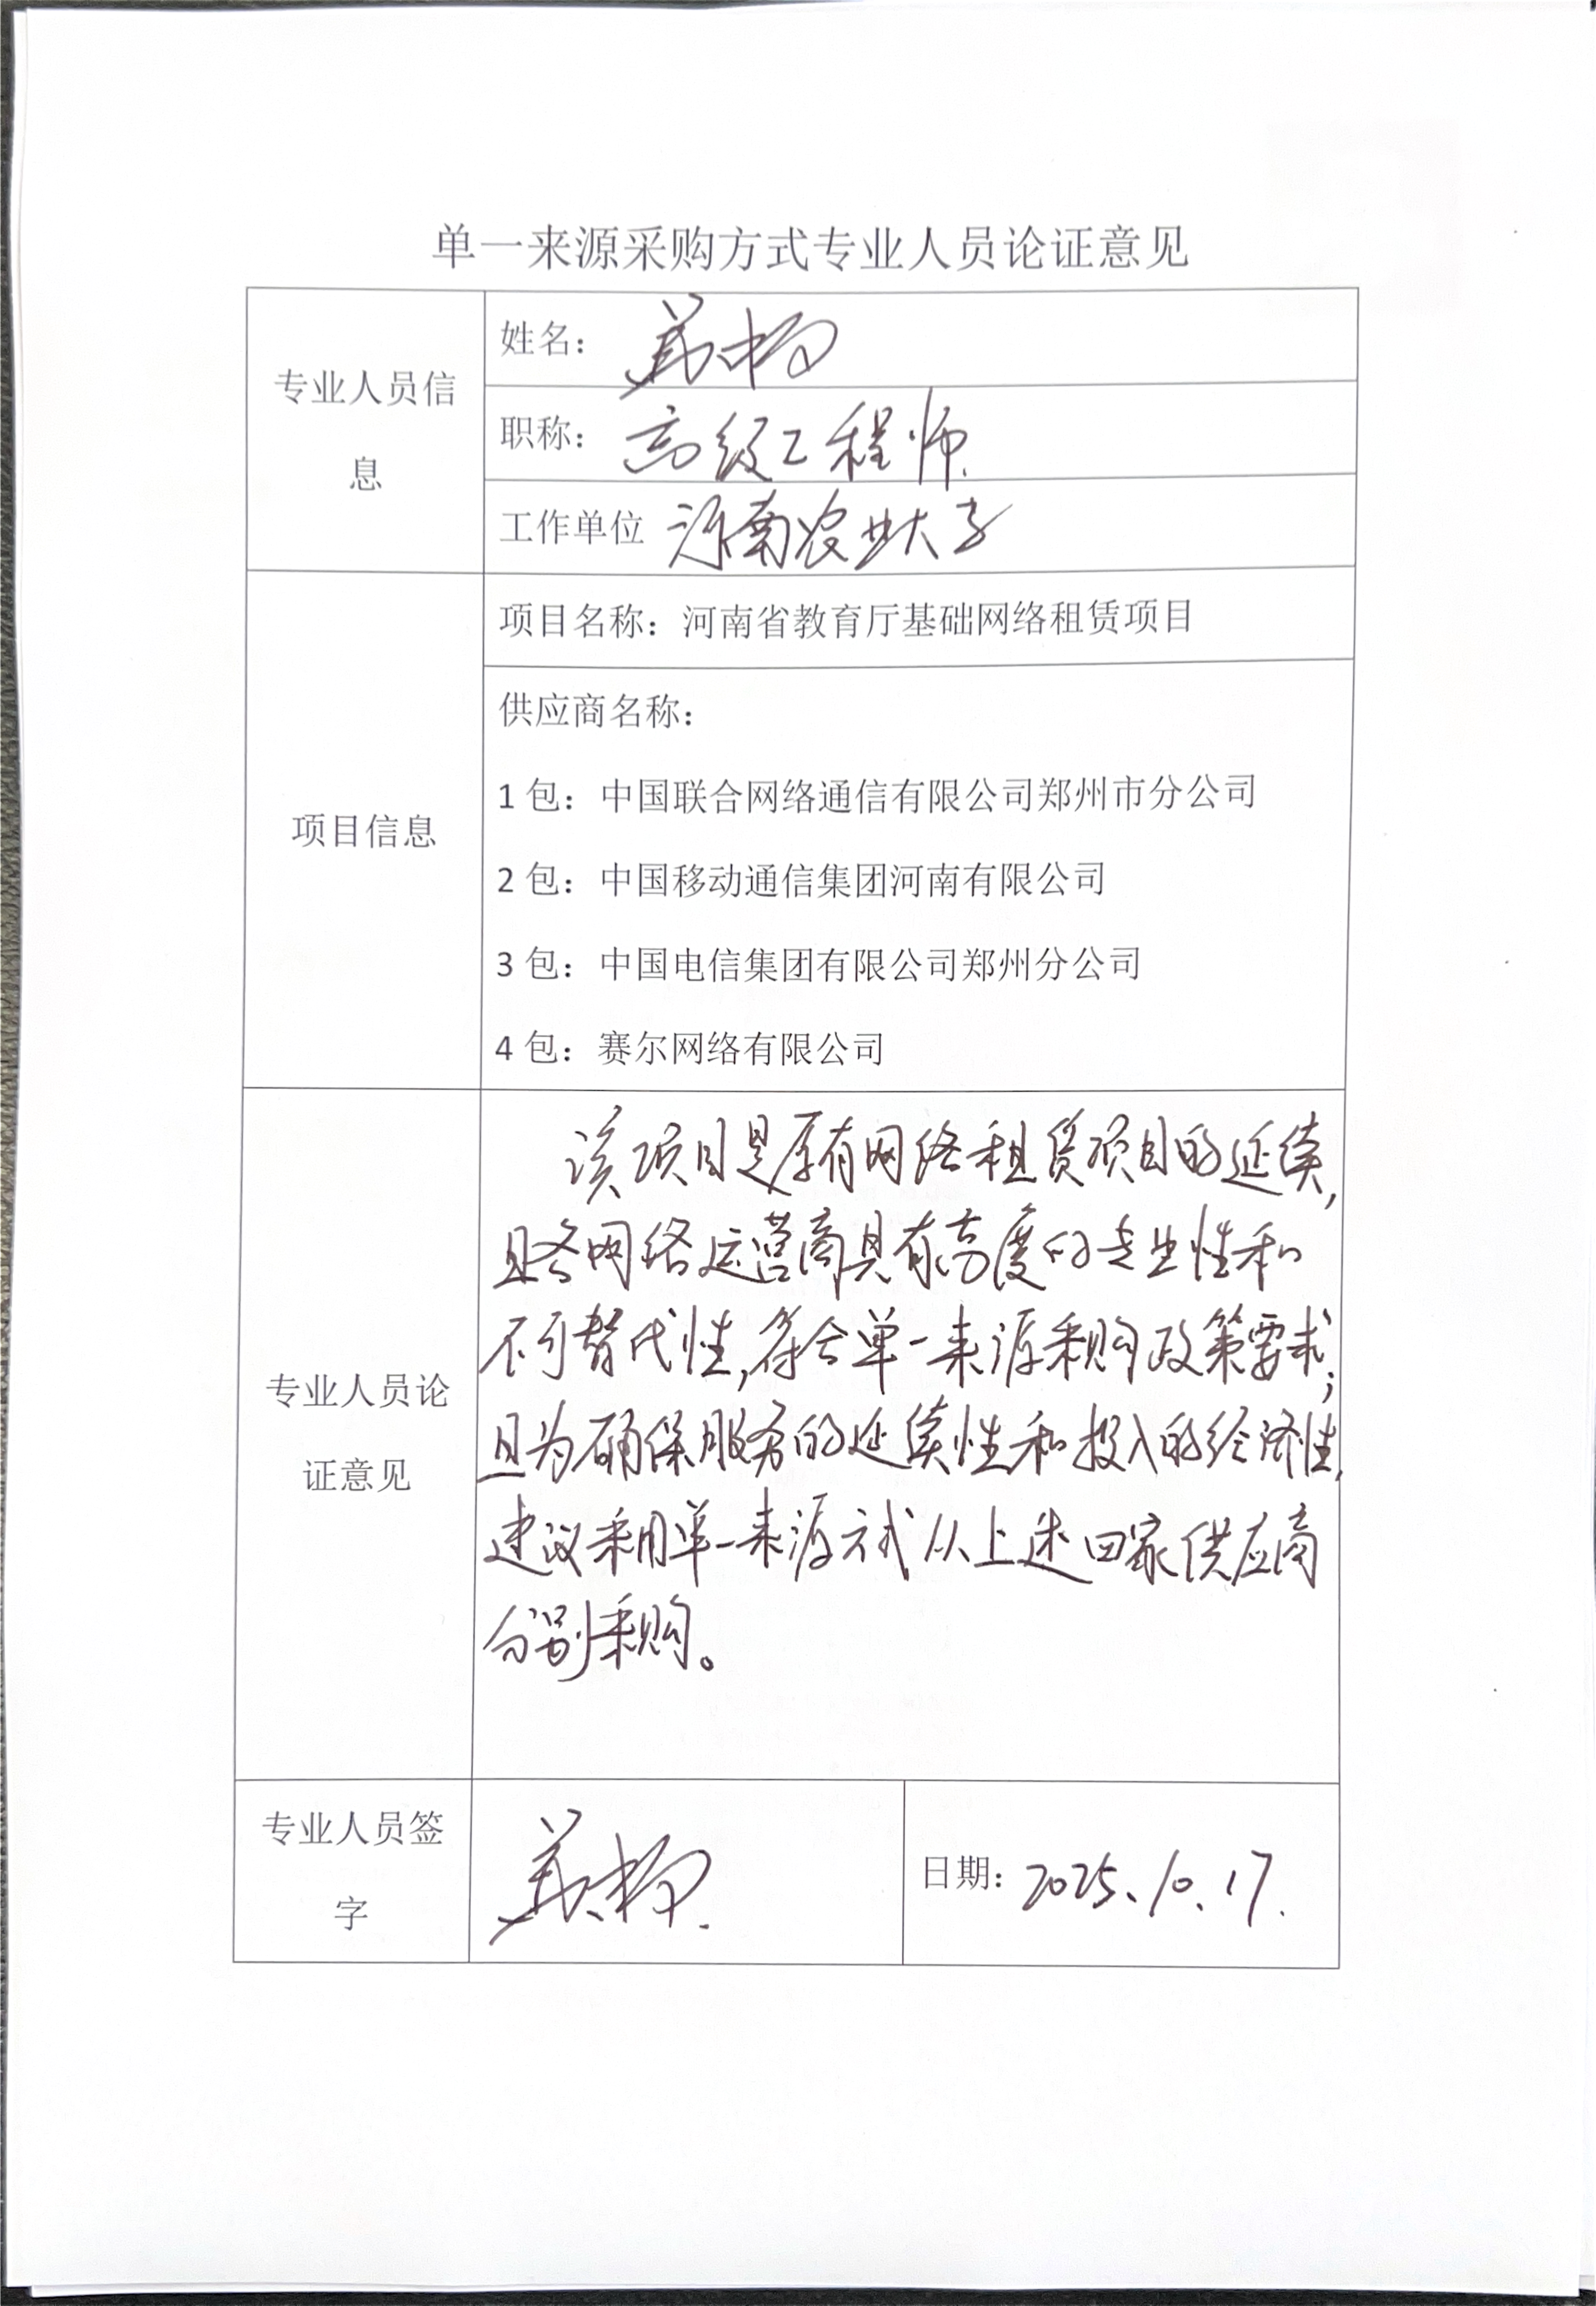 单一来源采购方式专业人员论证意见
专业人员信
息
姓名：
职称：高级工程师
工作单位 河南农业大学
项目信息
项目名称：河南省教育厅基础网络租赁项目
供应商名称：
1包：中国联合网络通信有限公司郑州市分公司
2包：中国移动通信集团河南有限公司
3包：中国电信集团有限公司郑州分公司
4包：赛尔网络有限公司
专业人员论
证意见
该项目是原有网络租赁项目的延续，
且各网络运营商具有高度的专业性和
不可替代性，符合单一来源采购政策要求；
且为确保服务的延续性和投入的经济性，
建议采用单一来源方式从上述四家供应商
分别采购。
专业人员签
字
日期：2025.10.17.